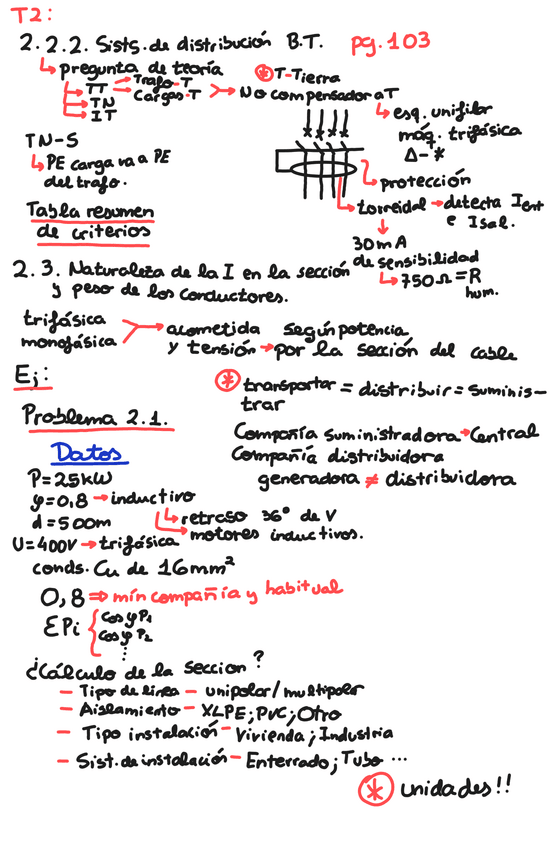 T2:
2.2.2. Sists. de distribución B.T. pg. 103
↳ pregunta de teoría
→ TT → Trafo-T
→ Cargas-T
→ TN
→ IT
* T-Tierra
No compensador a T
↳ esq. unifilar
máq. trifásica
Δ-*
TN-S
↳ PE carga va a PE
del trafo.
protección
toroidal → detecta Ient
e Isal.
30mA
de sensibilidad
↳ 750Ω = R
hum.
Tabla resumen
de criterios
2.3. Naturaleza de la I en la sección
y peso de los conductores.
trifásica
monofásica
→ acometida según potencia
y tensión → por la sección del cable
Ej:
* transportar = distribuir = suminis-
trar
Problema 2.1.
Compañía suministradora → Central
Compañía distribuidora
generadora ≠ distribuidora
Datos
P=25kW
φ=0,8 → inductivo
↳ retraso 36° de V
→ motores inductivos.
d=500m
U=400V → trifásica
conds. Cu de 16mm²
0,8 ⇒ mín compañía y habitual
ΣPi { cosφP1
cosφP2
⋮
¿Cálculo de la seccion?
– Tipo de línea – unipolar/multipolar
– Aislamiento – XLPE; PVC; Otro
– Tipo instalación – Vivienda; Industria
– Sist. de instalación – Enterrado; Tubo ...
* unidades!!